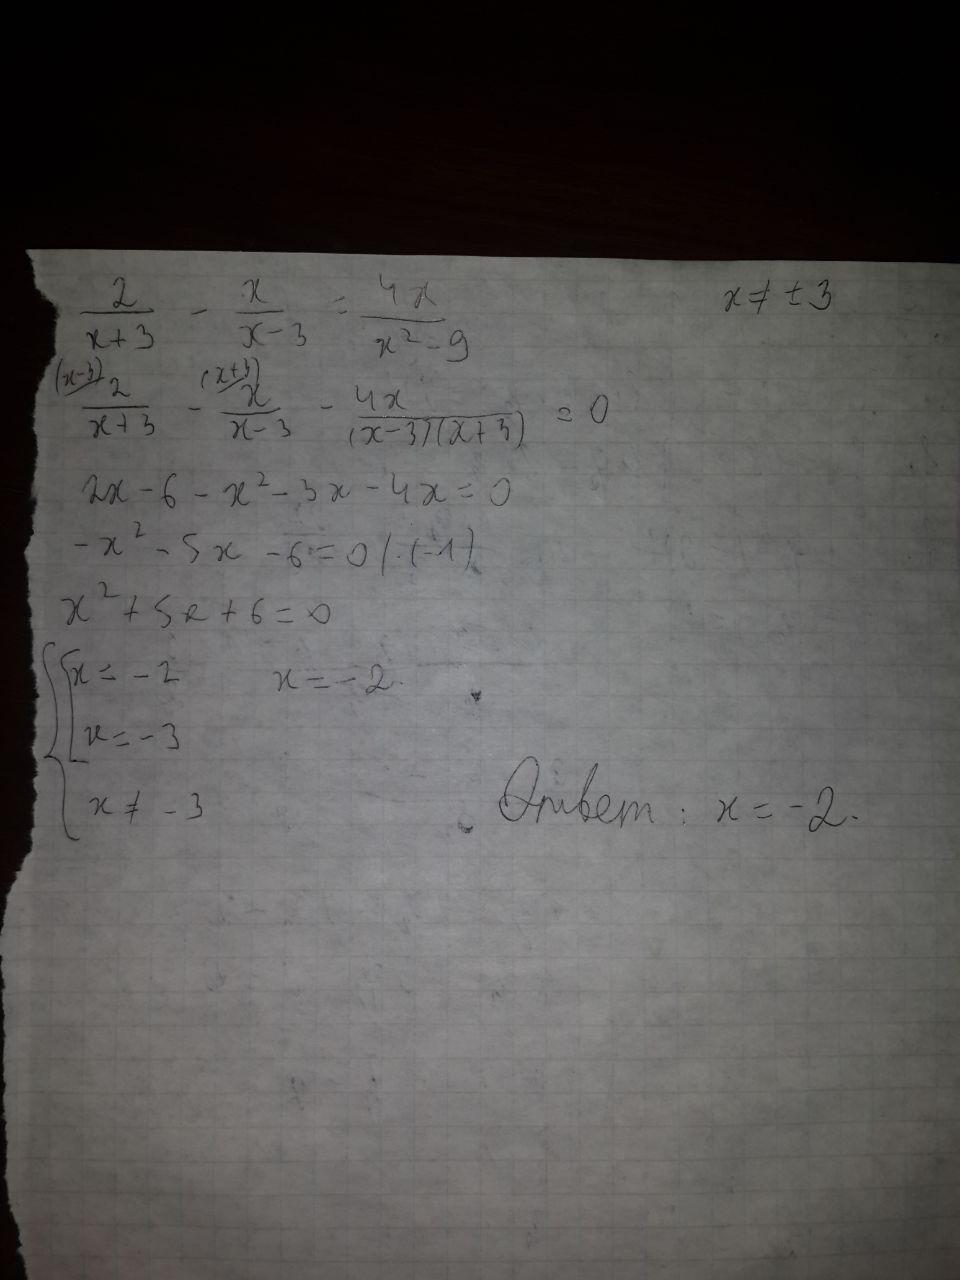 2/(x+3) - x/(x-3) = 4x/(x²-9) x ≠ ±3
(x-3) 2/(x+3) - (x+3) x/(x-3) - 4x/((x-3)(x+3)) = 0
2x - 6 - x² - 3x - 4x = 0
-x² - 5x - 6 = 0 | ·(-1)
x² + 5x + 6 = 0
{ [ x = -2 x = -2.
x = -3
x ≠ -3
Ответ: x = -2.